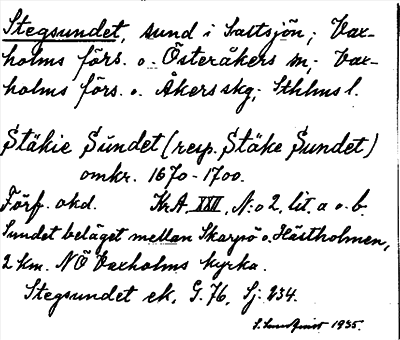 Stegsundet, sund i Saltsjön; Vax-
holms förs. o. Österåkers sn; Vax-
holms förs. o. Åkers skg; Sthlms l.
Stäkie Sundet (resp. Stäke Sundet)
omkr. 1670-1700.
Förf. okd. Kr.A. XXI, N:o 2, lit. a o. b.
Sundet beläget mellan Skarpö o. Hästholmen,
2 km. NÖ Vaxholms kyrka.
Stegsundet ek. G. 76, Sj. 234.
S. Lundqvist 1935.